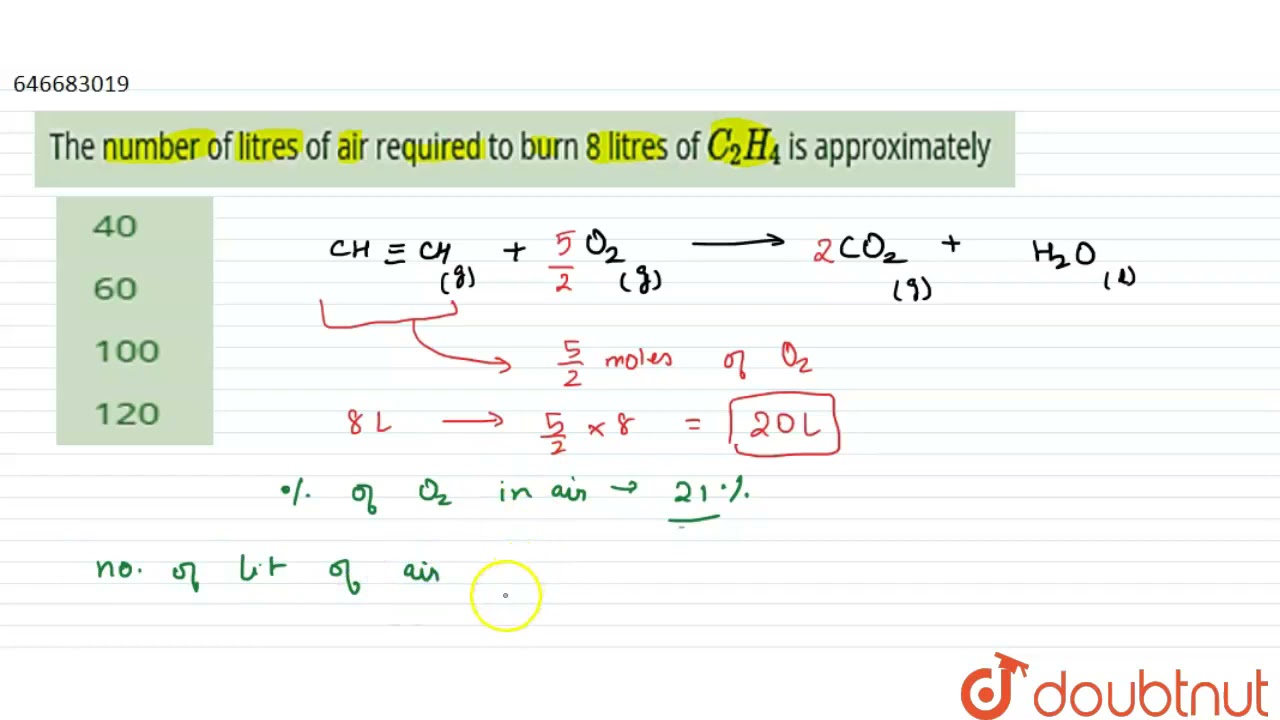 646683019
The number of litres of air required to burn 8 litres of C₂H₄ is approximately
40
60
100
120
CH ≡ CH (g) + 5/2 O₂ (g) → 2CO₂ (g) + H₂O (l)
5/2 moles of O₂
8L → 5/2 × 8 = 20L
% of O₂ in air → 21%
no. of lit of air
doubtnut